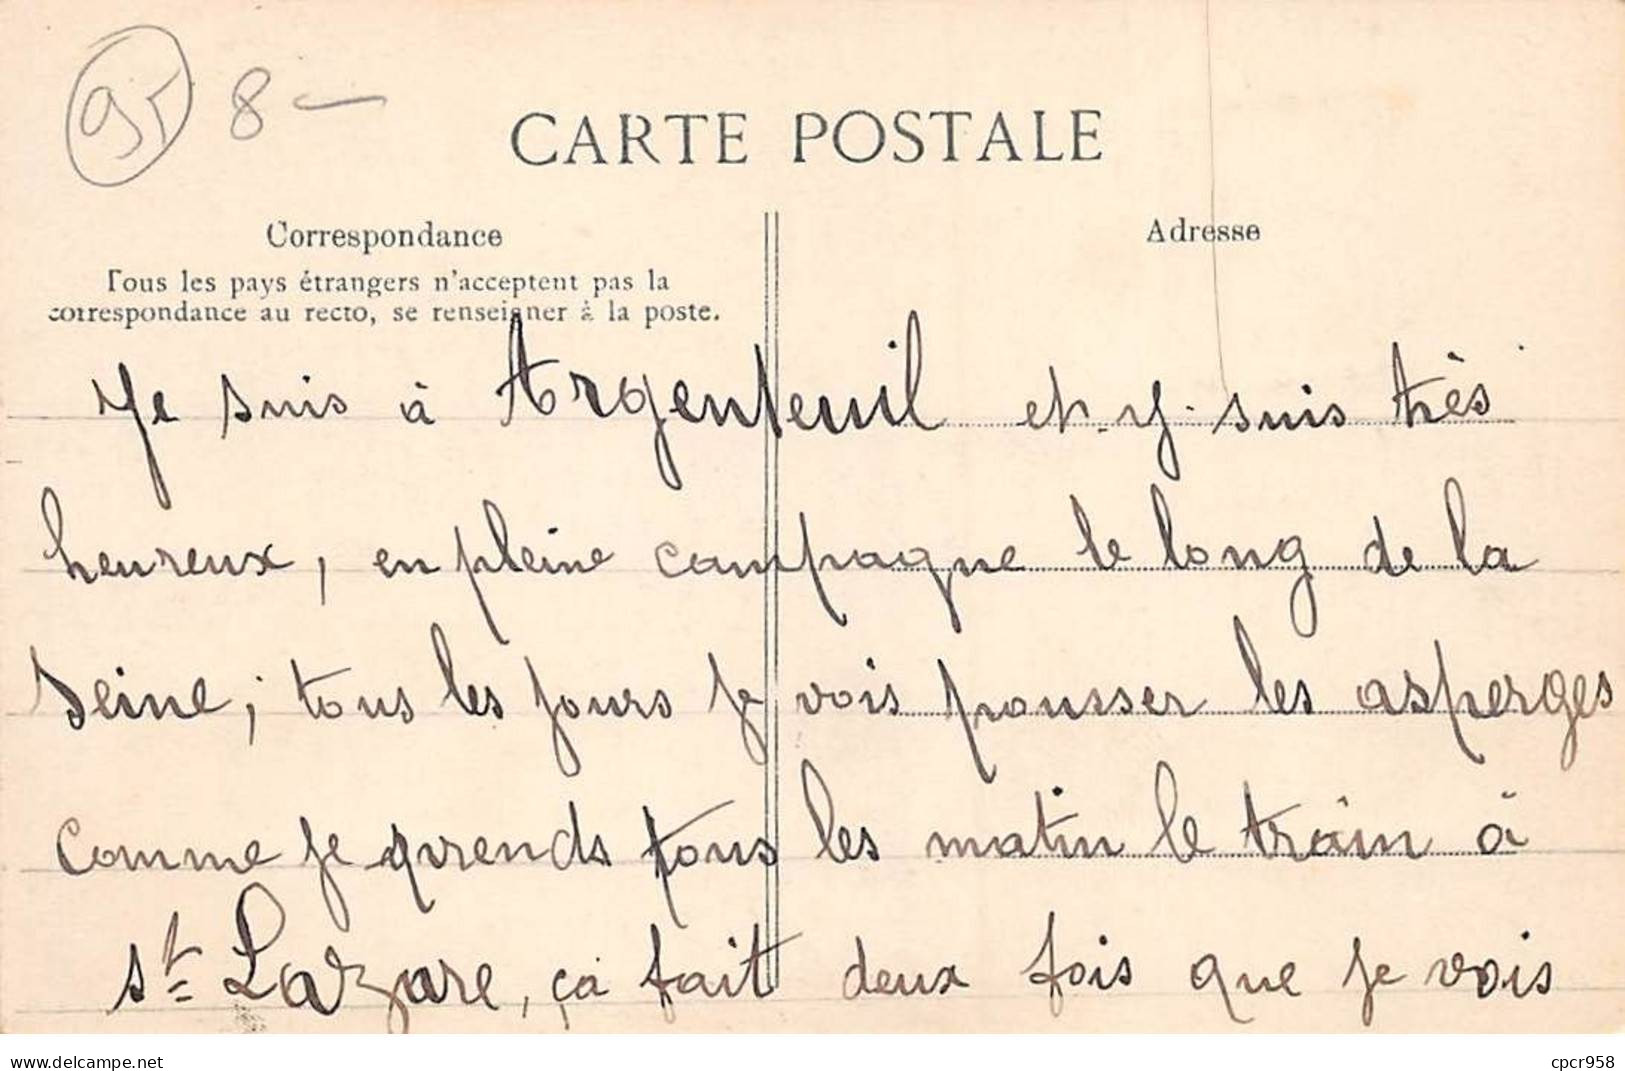 95 8 —
CARTE POSTALE
Correspondance
Adresse
Tous les pays étrangers n'acceptent pas la
correspondance au recto, se renseigner à la poste.
Je suis à Argenteuil et y suis très
heureux, en pleine campagne le long de la
Seine; tous les jours je vois pousser les asperges
comme je prends tous les matin le train à
St Lazare, ça fait deux fois que je vois
www.delcampe.net
cpcr958